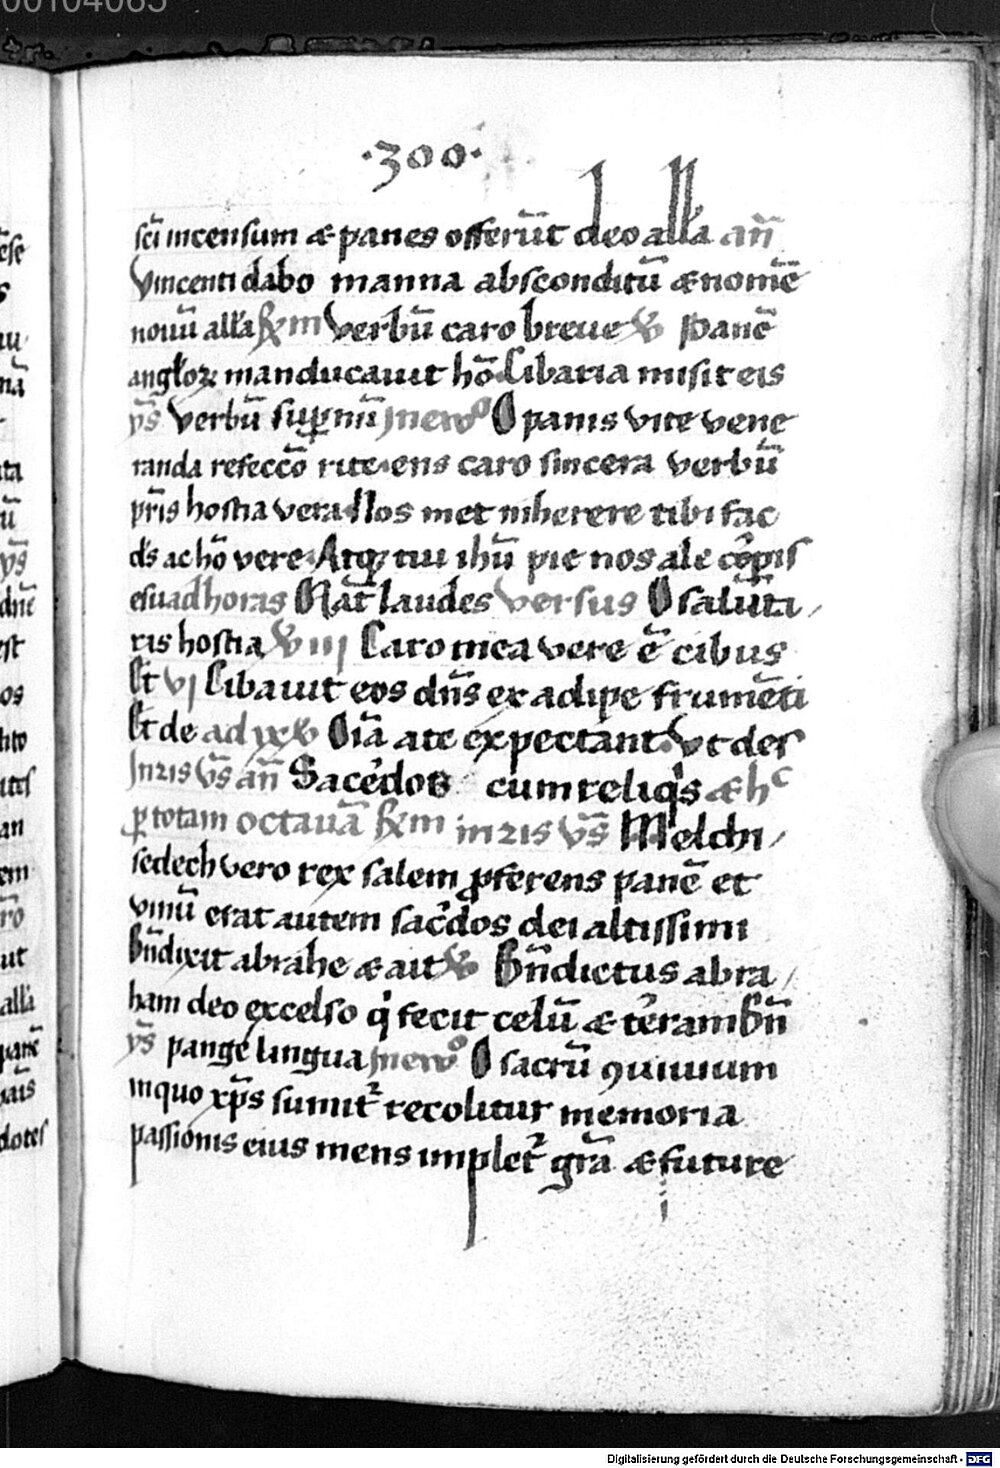 00104065
·300·
sc̄i incensum æ panes offerūt deo all'a an̄
Vincenti dabo manna absconditū æ nomē
nouū all'a Rx̄m Verbū caro breue V Panē
angl'oꝝ manducauit hō Cibaria misit eis
ys̄ Verbū sup̄nū In ewo O panis vite vene
randa refecc̄o rite ens caro sincera verbū
pr̄is hostia vera Nos met inherere tibi fac
ds̄ ac hō vere Atqꝫ tui ihū pie nos ale cōpis
esu ad horas Nāt laudes versus O salūta
ris hostia V iii Caro mea vere ē cibus
Et vi Cibauit eos dn̄s ex adipe frumēti
Et de ad ixV Oīa a te expectant Vt des
In 2is Vs̄ an̄ Sacerdos cum reliq's æ hᶜ
ꝑ totam octauā Rx̄m in 2is Vs̄ Melchi
sedech vero rex salem ꝓferens panē et
vinū erat autem sac'dos dei altissimi
Bn̄dixit abrahe æ ait V Bn̄dictus abra
ham deo excelso q' fecit celū æ t'eram Bn̄
ys̄ pange lingua In ewo O sacrū ꝯuiuium
in quo xp̄s sumit' recolitur memoria
passionis eius mens implet' gr̄a æ future
Digitalisierung gefördert durch die Deutsche Forschungsgemeinschaft - DFG